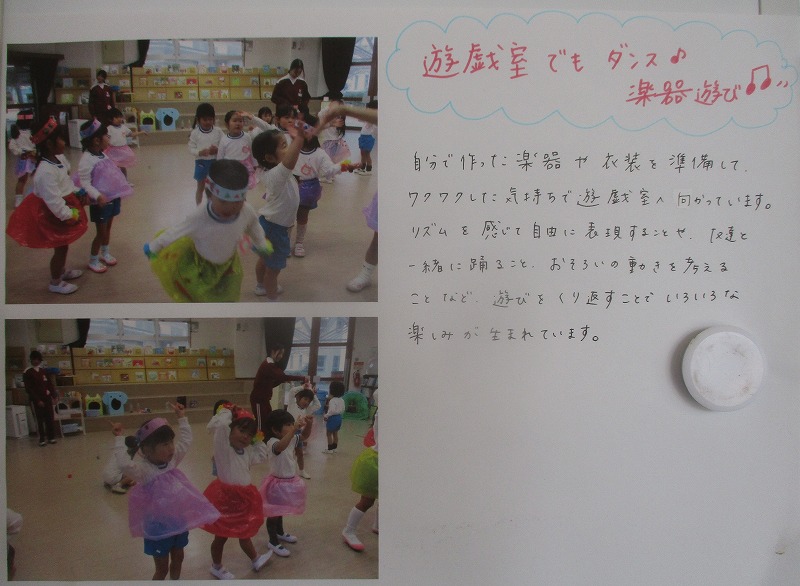 遊戯室でもダンス♪
楽器遊び♫
自分で作った楽器や衣装を準備して、
ワクワクした気持ちで遊戯室へ向かっています。
リズムを感じて自由に表現することや、友達と
一緒に踊ること、おそろいの動きを考える
ことなど、遊びをくり返すことでいろいろな
楽しみが生まれています。